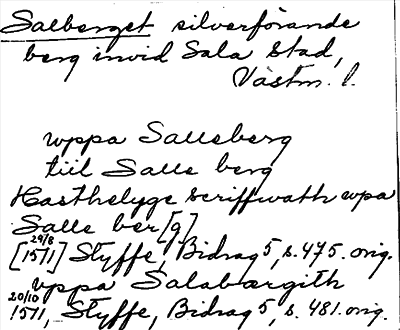 Salberget silverförande
berg invid Sala stad,
Västm. l.
wppa Salleberg
tiil Salle berg
Hasthelyge scriffwath wpa
Salle ber[g]
[29/8 1571] Styffe, Bidrag 5, s. 475. orig.
vppa Salabærgith
20/10 1571, Styffe, Bidrag 5, s. 481. orig.